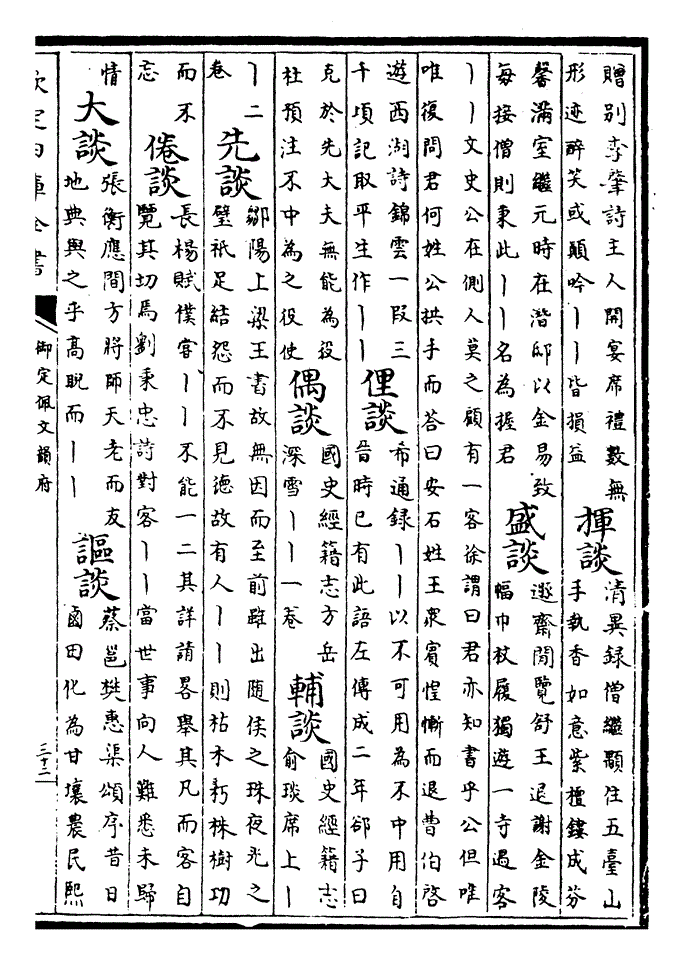 贈別李肇詩主人開宴席禮數無
形迹醉笑或顛吟丨丨皆損益
揮談
清異録僧繼顒住五臺山
手執香如意紫檀鏤成芬
馨滿室繼元時在潛邸以金易致
每接僧則秉此丨丨名為握君
盛談
遯齋閒覽舒王退謝金陵
幅巾杖履獨遊一寺過客
丨丨文史公在側人莫之顧有一客徐謂曰君亦知書乎公但唯
唯復問君何姓公拱手而答曰安石姓王衆賓惶慚而退曹伯啓
遊西湖詩錦雲一段三
千頃記取平生作丨丨
俚談
希通録丨丨以不可用為不中用自
昔時已有此語左傳成二年郤子曰
克於先大夫無能為役
杜預注不中為之役使
偶談
國史經籍志方岳
深雪丨丨一卷
輔談
國史經籍志
俞琰席上丨
丨二
卷
先談
鄒陽上梁王書故無因而至前雖出隨侯之珠夜光之
璧祇足結怨而不見德故有人丨丨則枯木朽株樹功
而不
忘
倦談
長楊賦僕客丨丨不能一二其詳請畧舉其凡而客自
覽其切焉劉秉忠詩對客丨丨當世事向人難悉未歸
情
大談
張衡應間方將師天老而友
地典與之乎高睨而丨丨
謳談
蔡邕樊惠渠頌序昔日
鹵田化為甘壤農民熙
欽定四庫全書
御定佩文韻府
三十二